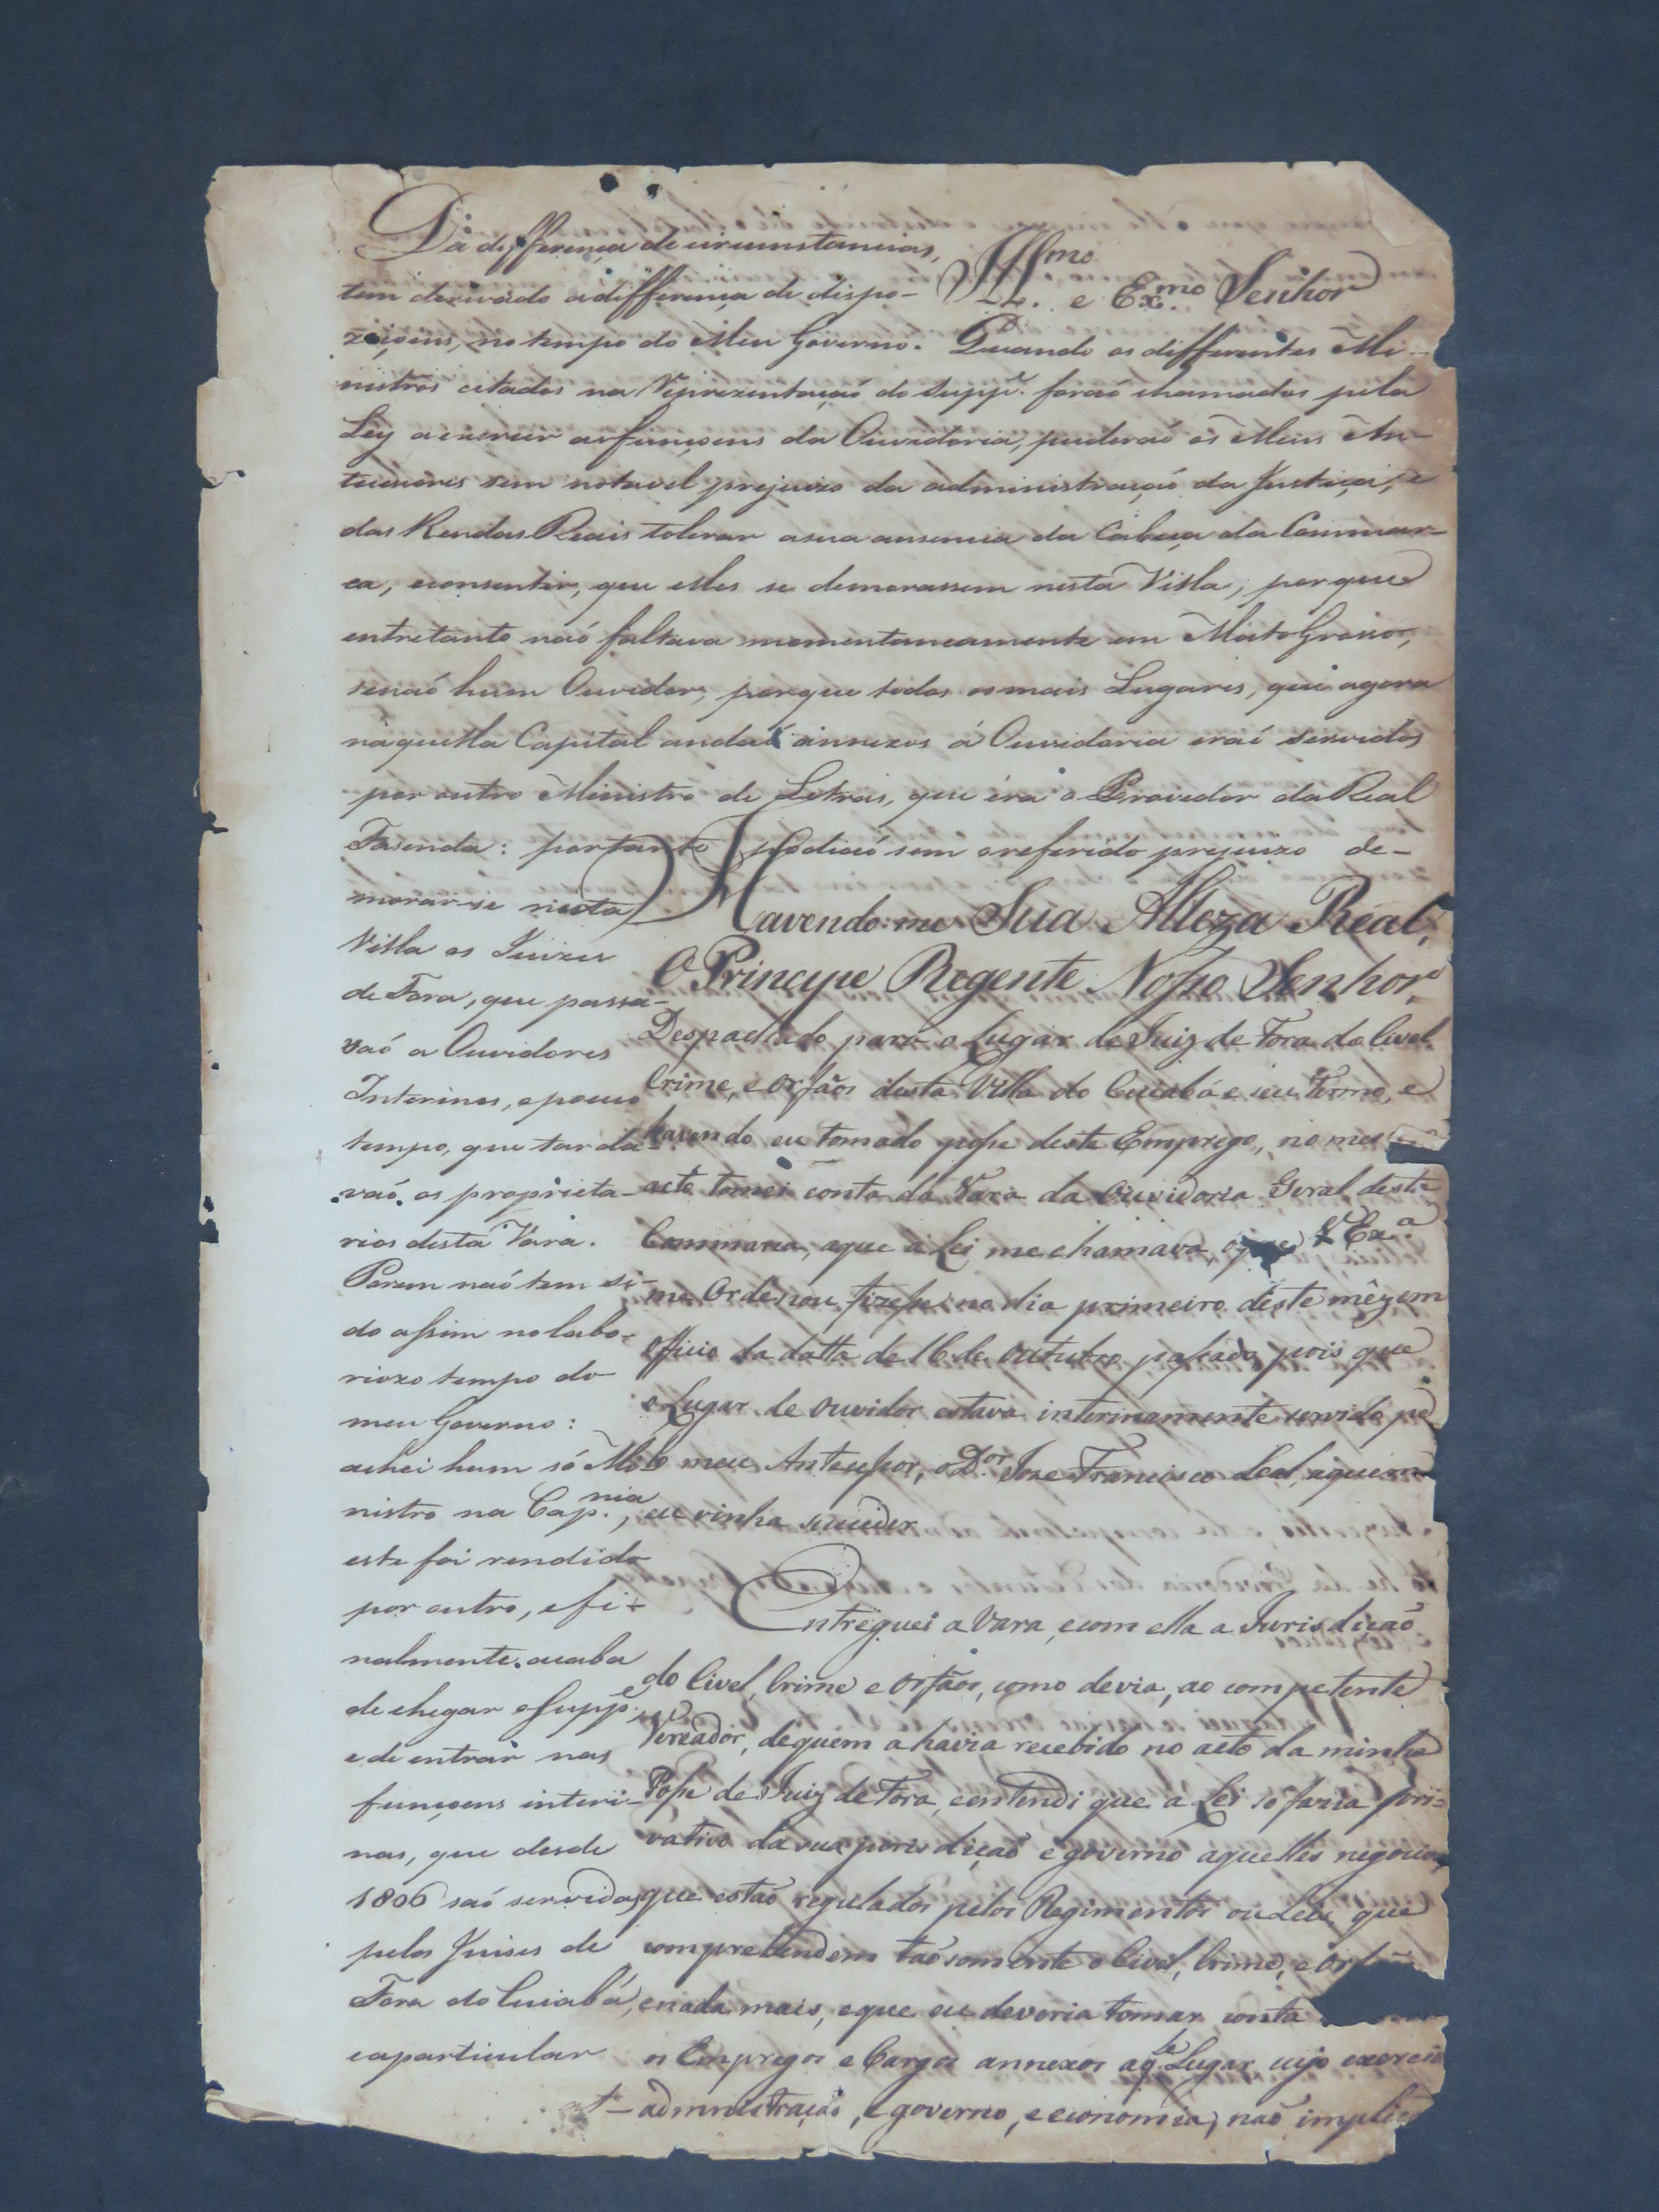 Da differença de circunstancias,
tem derivado a differença de dispo-
ziçoens, no tempo do Meu Governo. Quando os differentes Mi-
nistros citados na Reprezentaçaó do Supp.e foraó chamados pela
Ley a exercer as funçoens da Ouvidoria, puderaó os Meus An-
tecessores sem notavel prejuizo da administraçaó da Justiça, e
das Rendas Reais tolerar a sua ausencia da Cabeça da Commar-
ca, e consentir, que elles se demorassem nesta Villa; porque
entretanto naó faltava momentaneamente em Mato Grosso,
senaó hum Ouvidor, porque todos os mais Lugares, que agora
naquella Capital andaó annexos á Ouvidoria eraó servidos
por outro Ministro de Letras, que éra o Provedor da Real
Fasenda: portanto podiaó sem o referido prejuizo de-
morar-se nesta
Villa os Juizes
de Fora, que passa-
vaó a Ouvidores
Interinos, e pouco
tempo, que tarda-
vaó os proprieta-
rios desta Vara.
Porem naó tem si-
do assim no labo-
riozo tempo do
meu Governo:
achei hum só Mi-
nistro na Cap.nia,
este foi rendido
por outro, e fi-
nalmente acaba
de chegar o Supp.e,
e de entrar nas
funçoens interi-
nas, que desde
1806 saó servidas
pelos Juises de
Fora do Cuiabá,
e a particular
Ill.mo e Ex.mo Senhor
Havendo-me Sua Alteza Real,
O Principe Regente Nosso Senhor,
Despachado para o Lugar de Juiz de Fora do Civel
Crime, e Orfãos desta Villa do Cuiabá e seu Termo, e
havendo eu tomado posse deste Emprego, no mes
acto tomei conta da Vara da Ouvidoria Geral desta
Commarca, a que a Lei me chamava, V Ex.a
me Ordenou fizesse no dia primeiro deste mêz em
Officio da datta de 16 de Outubro passado, pois que
o Lugar de Ouvidor estava interinamente servido pe
lo meu Antecessor, o D.or Jose Francisco Leal, a quem
eu vinha succeder
Entreguei a Vara, e com ella a Jurisdição
do Civel, Crime e Orfãos, como devia, ao competente
Vereador, de quem a havia recebido no acto da minha
Posse de Juiz de Fora, e entendi que a Lei so fazia pri=
vativo da sua jurisdiçaó e governo aquelles negocios,
que estaó regulados pelos Regimentos ou Leis que
comprehendem taó somente o Civel, Crime, e Or
e nada mais, e que eu deveria tomar conta
os Empregos e Cargos annexos aq.le Lugar cujo exerci
administração, e governo, e economia, não implic